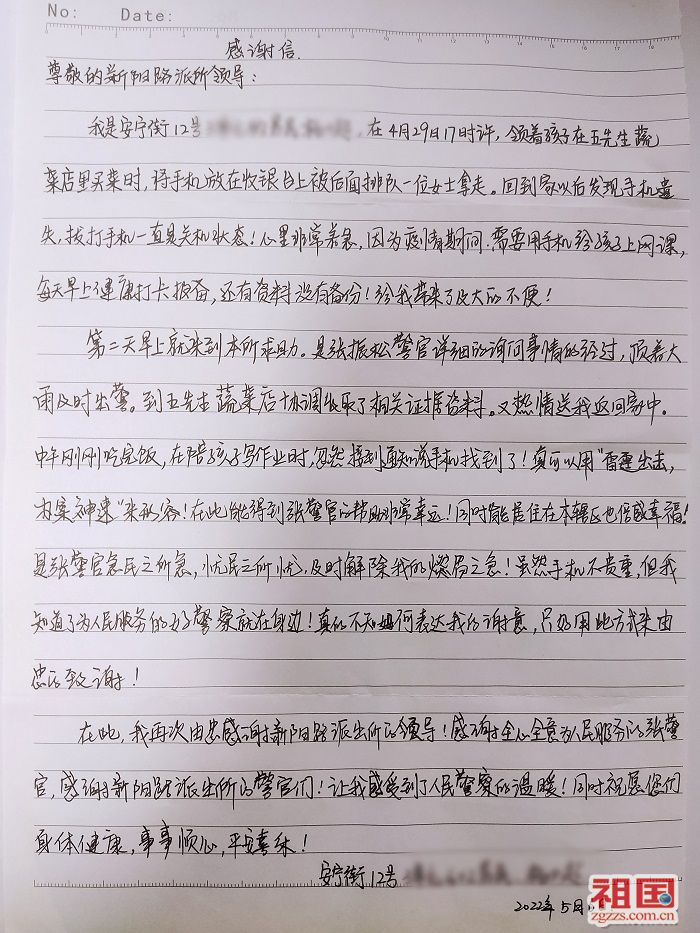 No:
Date:
感谢信.
尊敬的新阳路派所领导:
我是安宁街12号 在4月29日17时许,领着孩子在五先生蔬
菜店里买菜时,将手机放在收银台上被后面排队一位女士拿走。回到家以后发现手机遗
失,拨打手机一直是关机状态!心里非常着急,因为疫情期间.需要用手机给孩子上网课,
每天早上健康打卡报备,还有资料没有备份!给我带来了及大的不便!
第二天早上就来到本所求助。是张振松警官详细的询问事情的经过,顶着大
雨及时出警。到五先生蔬菜店协调收取了相关证据资料。又热情送我返回家中。
中午刚刚吃完饭,在陪孩子写作业时,忽然接到通知说手机找到了!真可以用“雷霆出击,
办案神速”来形容!在此能得到张警官的帮助非常幸运!同时能居住在本辖区也倍感幸福!
是张警官急民之所急,忧民之所忧,及时解除我的燃眉之急!虽然手机不贵重,但我
知道了为人民服务的好警察就在身边!真的不知如何表达我的谢意,只好用此方式来由
忠的致谢!
在此,我再次由忠感谢新阳路派出所的领导!感谢全心全意为人民服务的张警
官,感谢新阳路派出所的警官们!让我感受到了人民警察的温暖!同时祝愿您们
身体健康,事事顺心,平安喜乐!
安宁街12号
2022年5月
祖国
zgzzs.com.cn